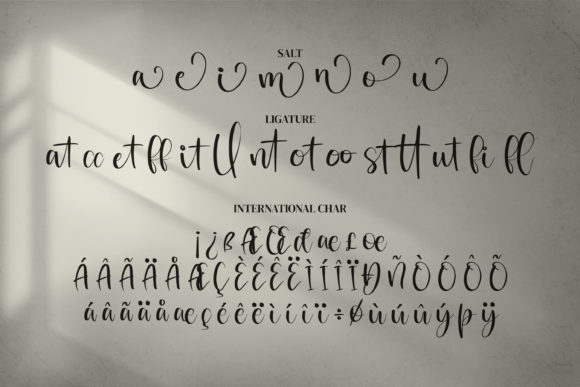 SALT
a e i m n o u
LIGATURE
at cc et ff it ll nt ot oo st tt ut fi fl
INTERNATIONAL CHAR
¡ ¿ ß Æ Œ đ æ £ œ
Á Â Ã Ä Å Æ Ç È É Ê Ë Ì Í Î Ï Ð Ñ Ò Ó Ô Õ
á â ã ä å æ ç é ê ë ì í î ï ÷ Ø ù ú û ý þ ÿ